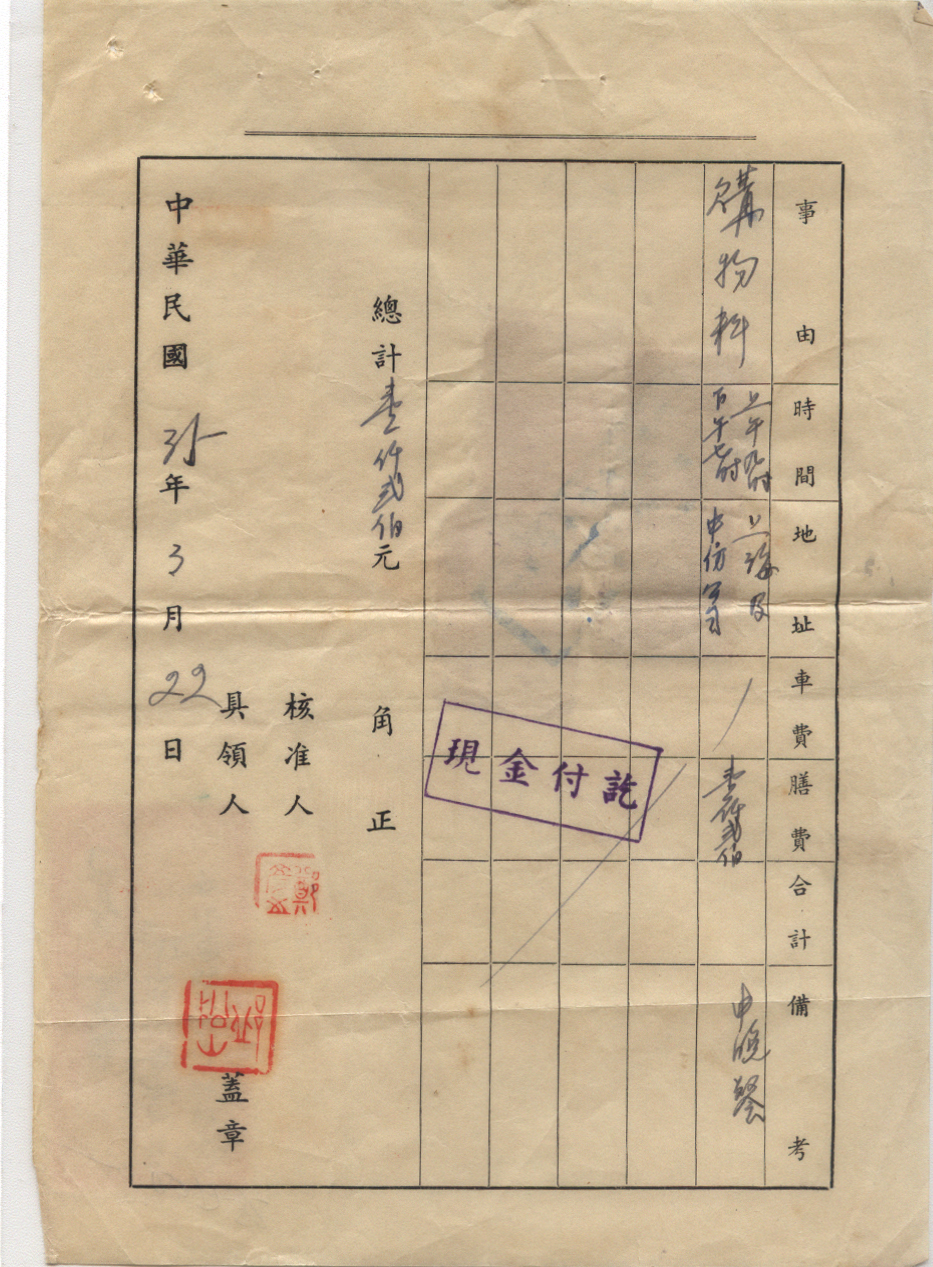 事由 時間 地址 車費 膳費 合計 備考
購物料
上午九时
下午七时
上海及
中紡公司
壹仟弍佰
中晚餐
現金付訖
總計壹仟弍佰元 角正
核准人
具領人 蓋章
中華民國 35年 3月 22日